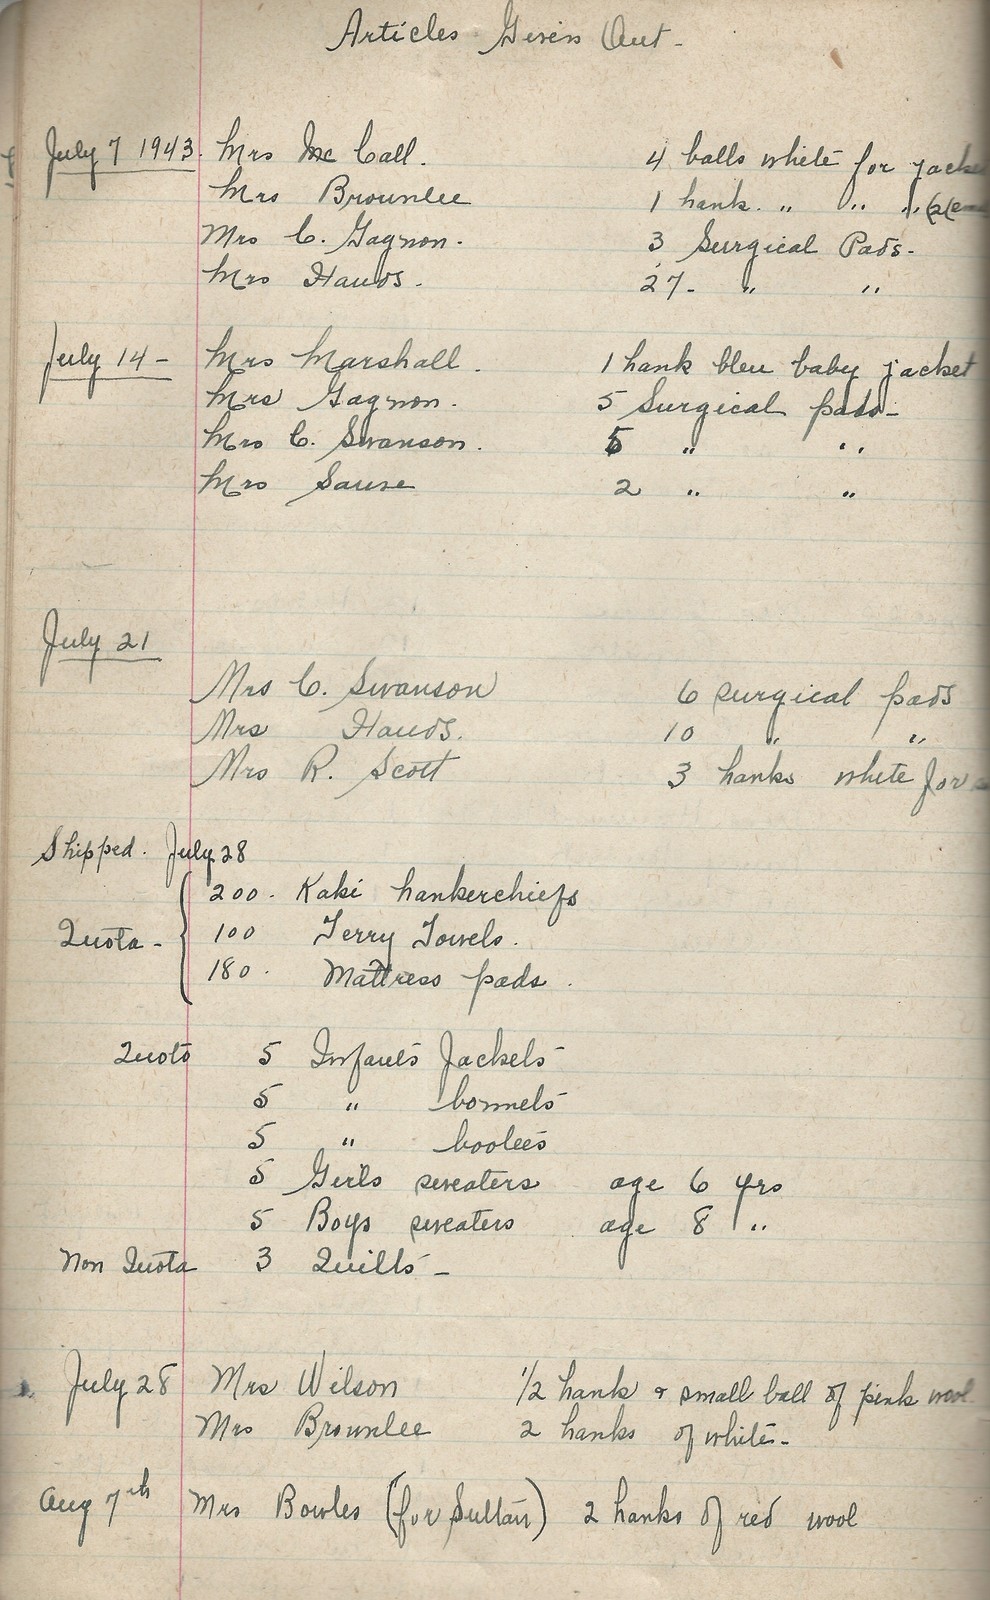 Articles Given Out -
July 7 1943. Mrs Mc Call. 4 balls white for jacke
Mrs Brownlee 1 hank. " " "
Mrs C. Gagnon. 3 Surgical Pads.
Mrs Hands. 27- " "
July 14 - Mrs Marshall. 1 hank bleu baby jacket
Mrs Gagnon. 5 Surgical pads-
Mrs C. Swanson. 5 " "
Mrs 2 " "
July 21
Mrs C. Swanson 6 surgical pads
Mrs Hands. 10 " "
Mrs R. Scott 3 hanks white for
Shipped. July 28
200. Kaki hankerchiefs
Quota - 100 Terry Towels.
180. Mattress pads.
Quota 5 Infants Jackets
5 " bonnets
5 " bootees
5 Girls sweaters age 6 yrs
5 Boys sweaters age 8 "
Non Quota 3 Quilts -
July 28 Mrs Wilson 1/2 hank & small ball of pink wool
Mrs Brownlee 2 hanks of white -
Aug 7th Mrs Bowles (for Sultan) 2 hanks of red wool